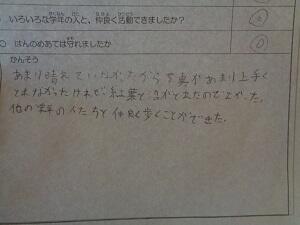 いろいろな学年の人と、仲良く活動できましたか?
はんのめあては守れましたか
かんそう
あまり晴れていなかったから写真があまり上手く
とれなかったけれど紅葉と
とれたのでよかった。
他の学年の人たちと仲良く歩くことができた。